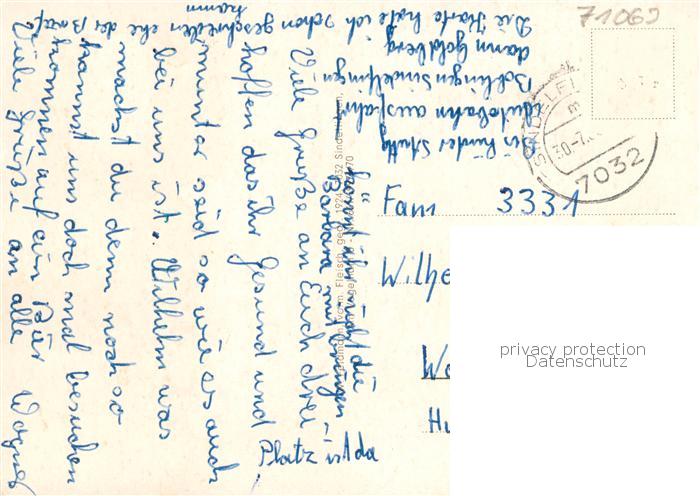 Viele Grüße an Euch drei
hoffen das ihr Gesund und
munter seid so wie es auch
bei uns ist. Wilhelm was
machst du denn noch so
kannst uns doch mal besuchen
kommen auf ein Bier
Viele Grüße an alle Wagner
könnt ihr nicht die
Barbara mitbringen
Platz ist da
Die Karte hatte ich schon geschrieben ehe der Brief
kamm
Bis hinter Stuttg
Autobahn ausfahr
Böblingen Sindelfingen
dann Goldberg
71069
SINDELFI
30.-7.
7032
Fam 3331
Wilhe
We
privacy protection
Datenschutz